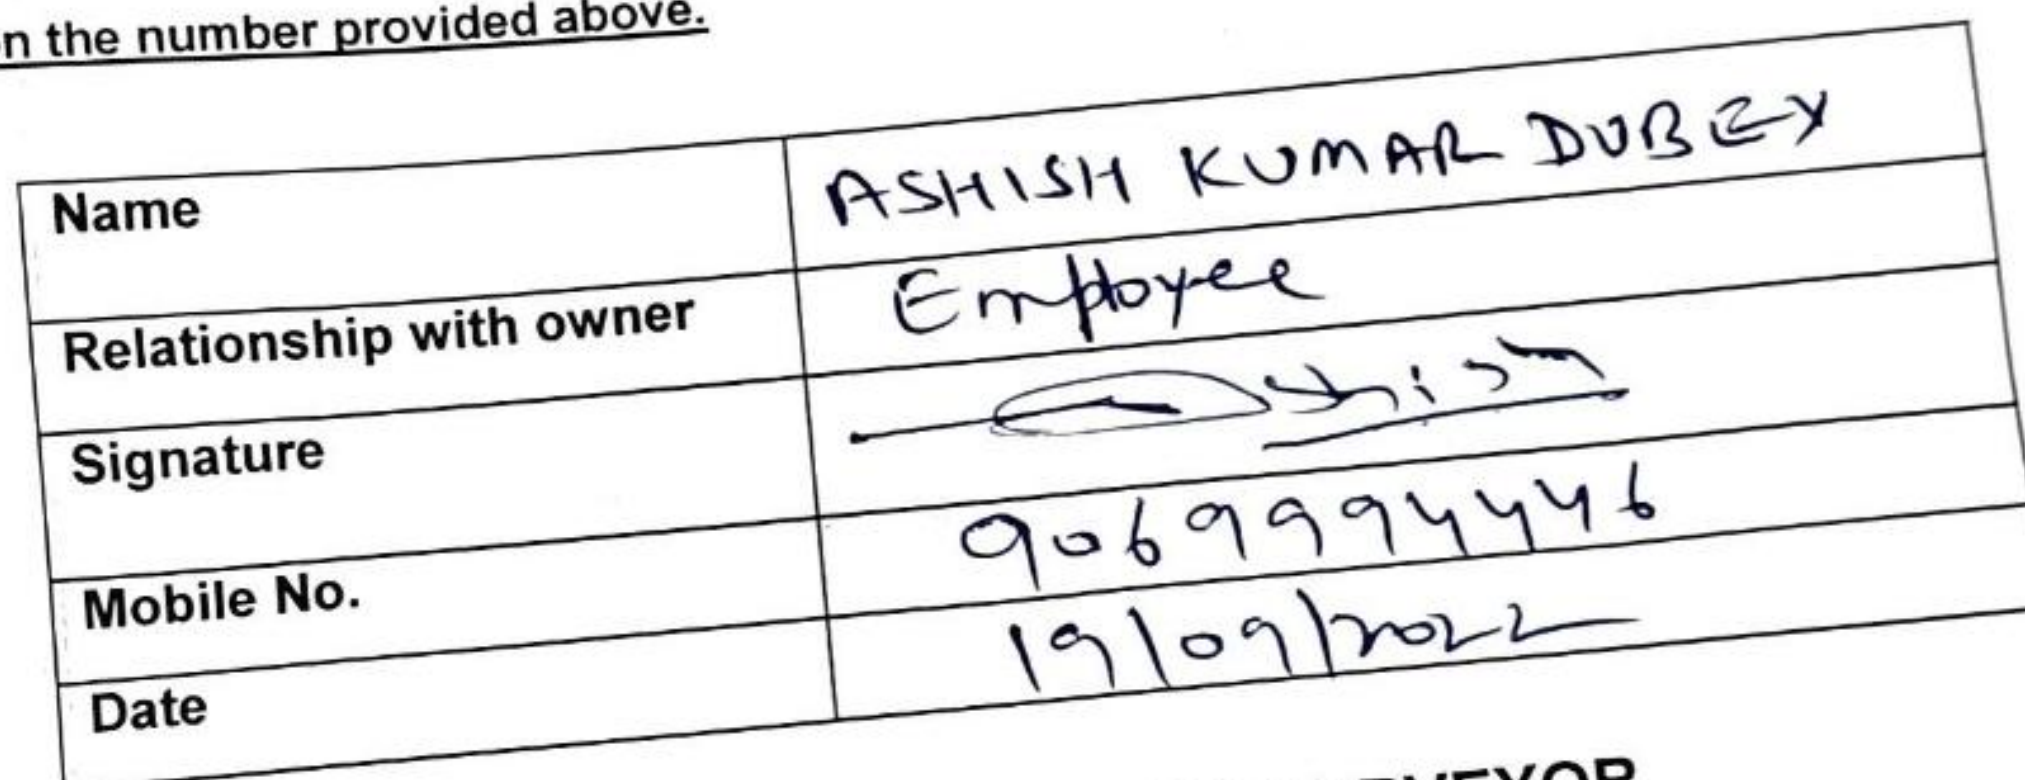 n the number provided above.
Name ASHISH KUMAR DUBEY
Relationship with owner Employee
Signature Ashish
Mobile No. 9069994446
Date 19/09/2022